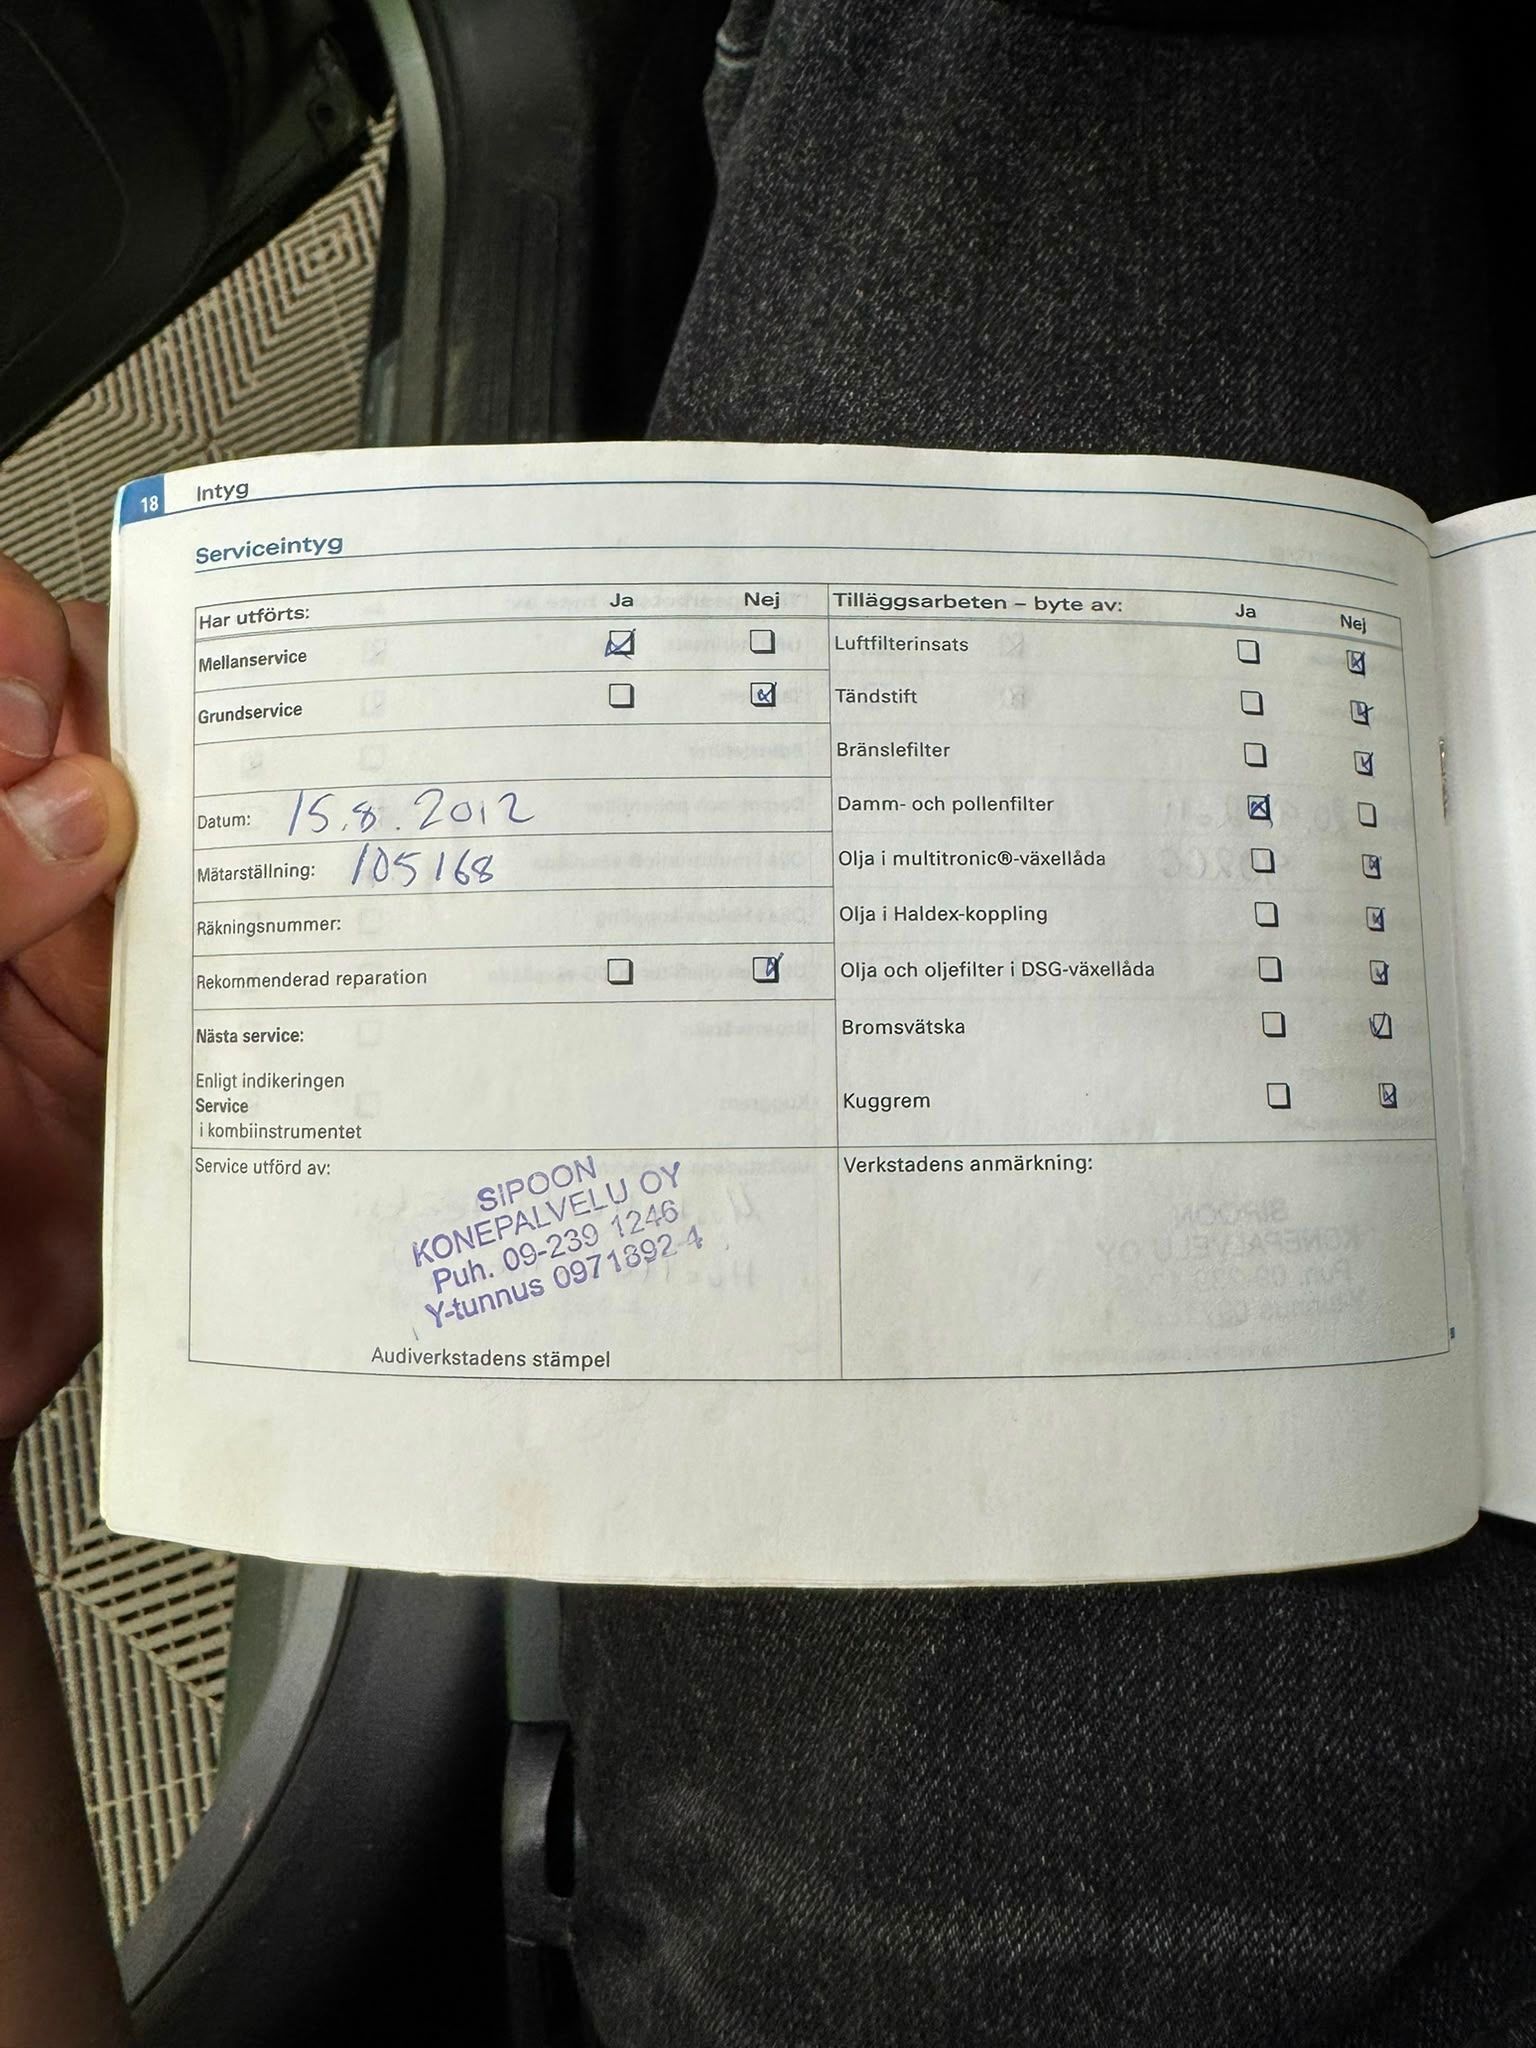 18 Intyg
Serviceintyg
Har utförts: Ja Nej
Mellanservice
Grundservice
Datum: 15.8.2012
Mätarställning: 105168
Räkningsnummer:
Rekommenderad reparation
Nästa service:
Enligt indikeringen
Service
i kombiinstrumentet
Service utförd av:
SIPOON
KONEPALVELU OY
Puh. 09-239 1246
Y-tunnus 0971892-4
Audiverkstadens stämpel
Tilläggsarbeten – byte av: Ja Nej
Luftfilterinsats
Tändstift
Bränslefilter
Damm- och pollenfilter
Olja i multitronic®-växellåda
Olja i Haldex-koppling
Olja och oljefilter i DSG-växellåda
Bromsvätska
Kuggrem
Verkstadens anmärkning: